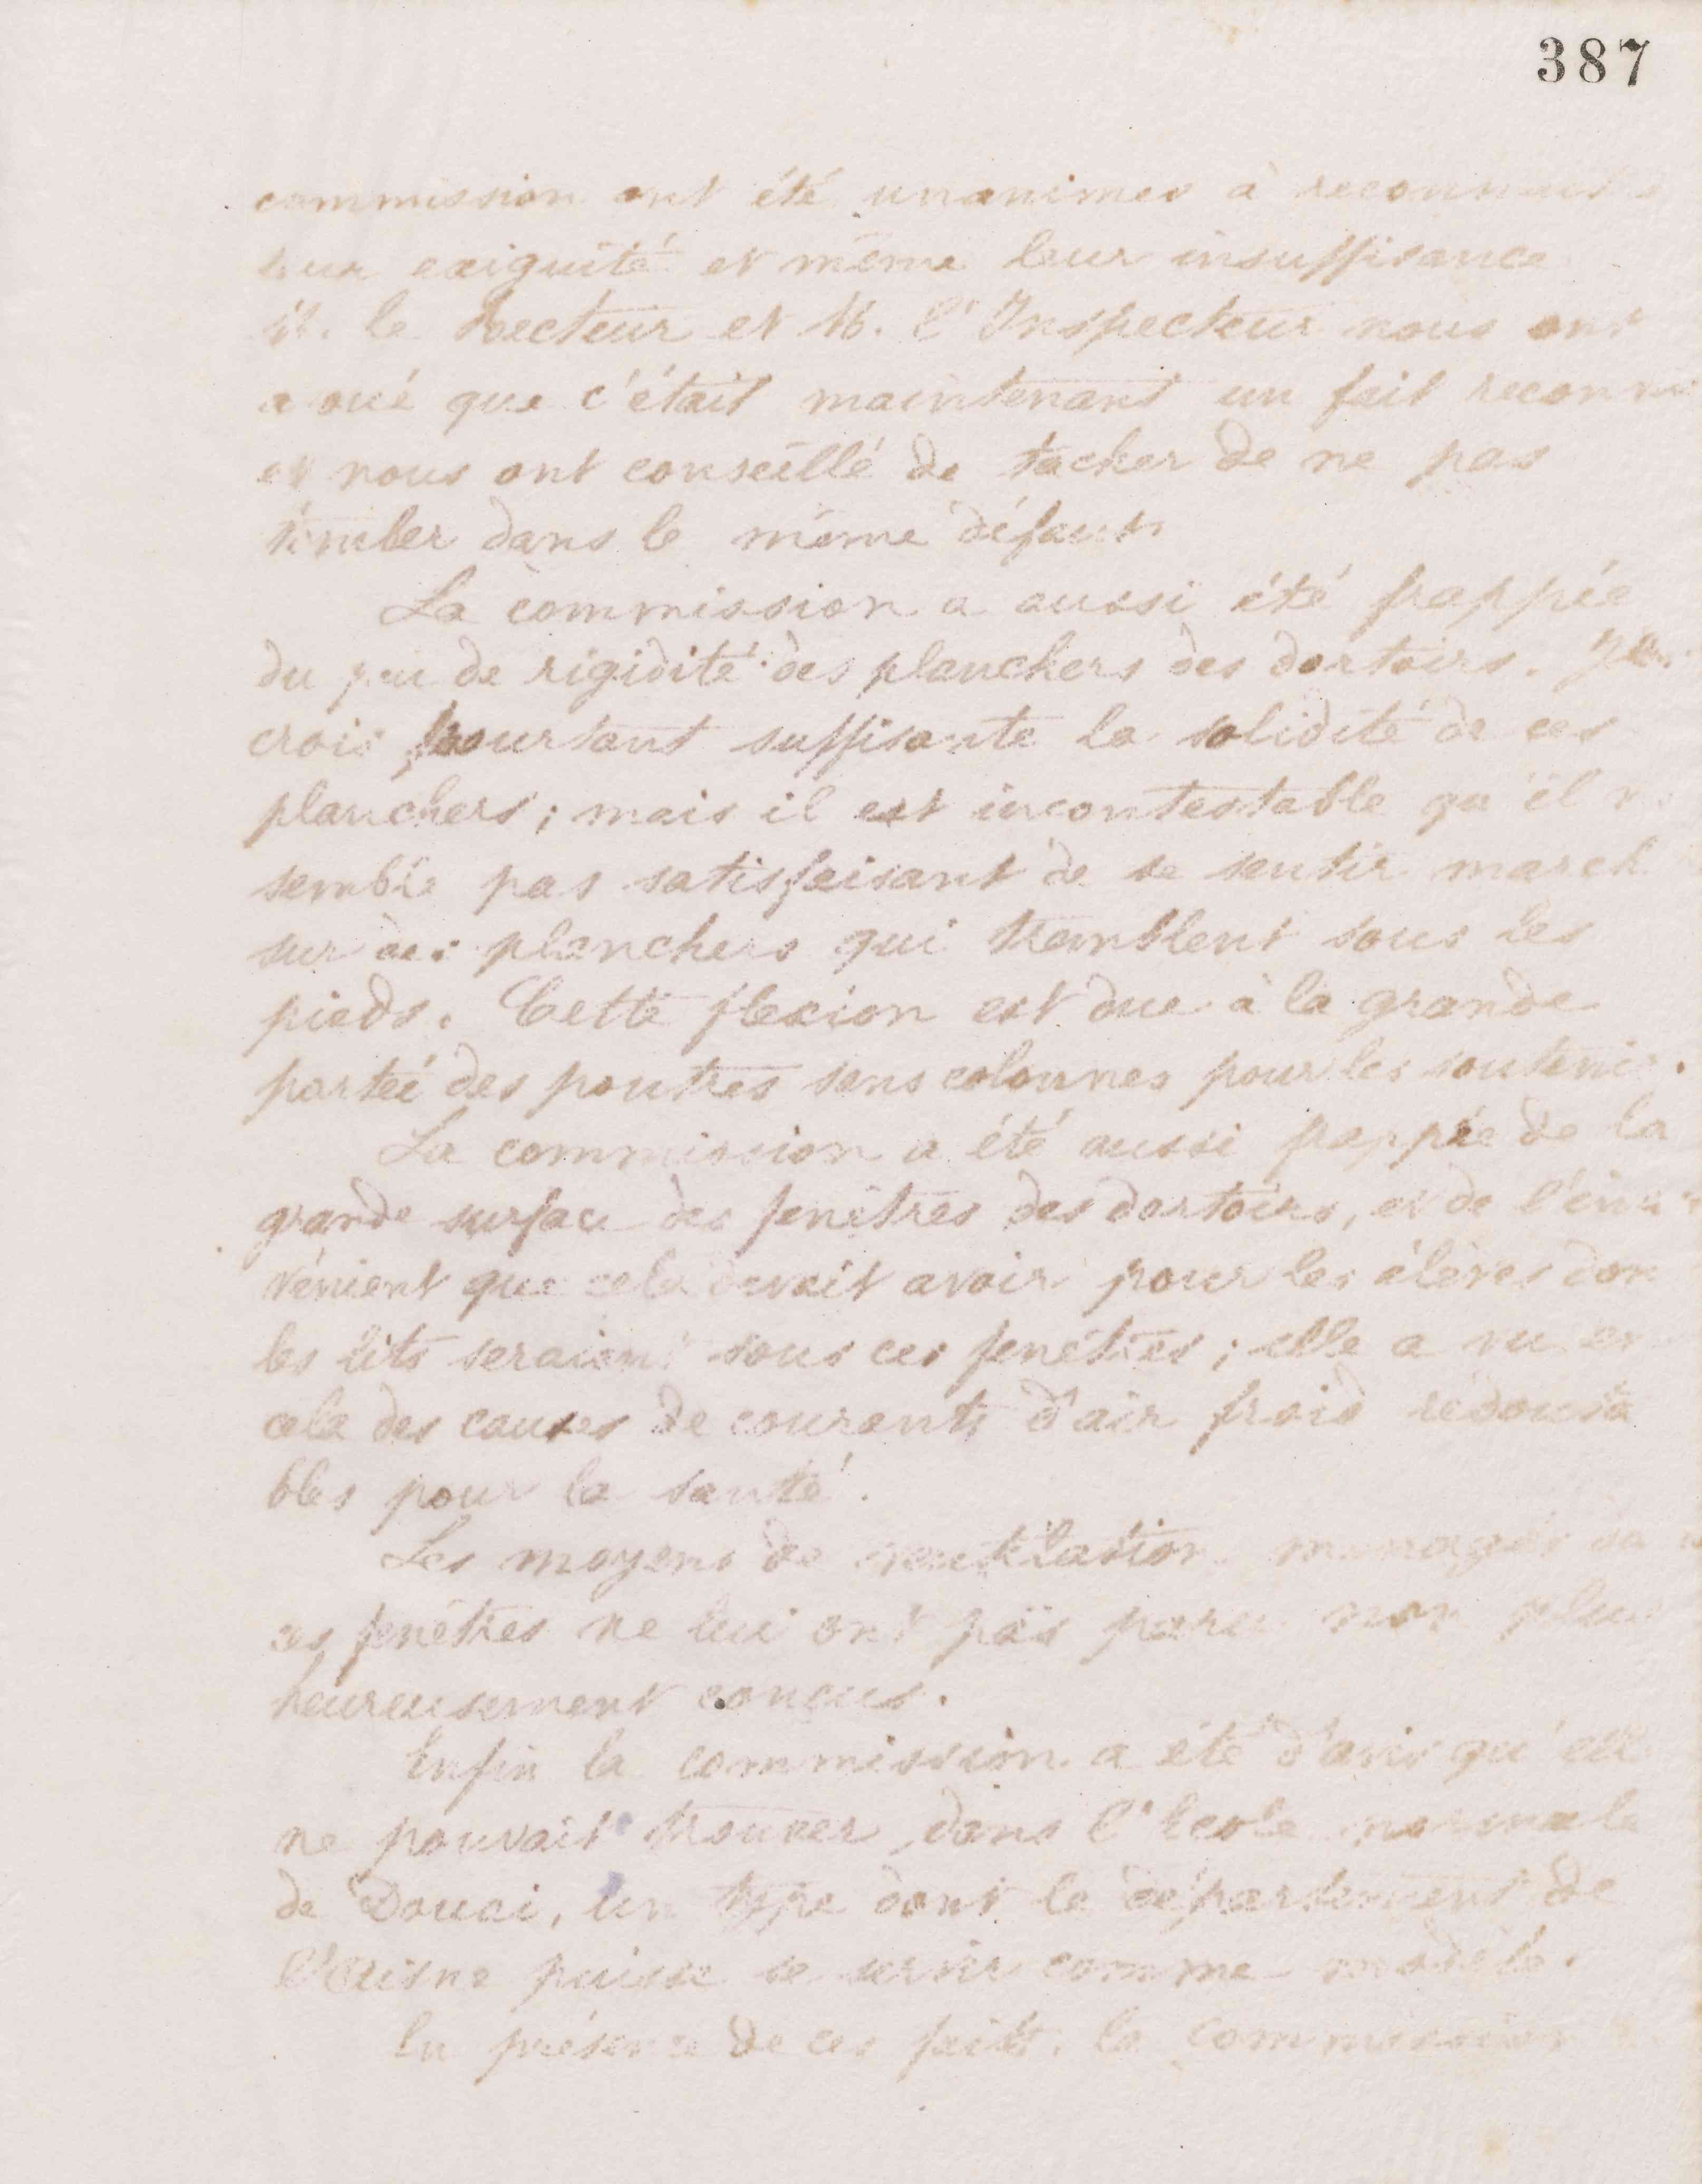 387
commission ont été unanimes à reconnaitre
leur exiguité et même leur insuffisance
M. le Recteur et M. l'Inspecteur nous ont
avoué que c'était maintenant un fait reconnu
et nous ont conseillé de tacher de ne pas
tomber dans le même défaut.
La commission a aussi été frappée
du peu de rigidité des planchers des dortoirs. Je
crois pourtant suffisante la solidité de ces
planchers ; mais il est incontestable qu'il ne
semble pas satisfaisant de se sentir march
sur des planchers qui tremblent sous les
pieds. Cette flexion est due à la grande
porteé des poutres sans colonnes pour les soutenir.
La commission a été aussi frappée de la
grande surface des fenêtres des dortoirs, et de l'incon
vénient que cela devait avoir pour les élèves don
les lits seraient sous ces fenêtres ; elle a vu en
cela des causes de courants d'air froid redouta
bles pour la santé.
Les moyens de ventilation menagés da
ces fenêtres ne lui ont pas paru non plus
heureusement concus.
Enfin la commission a été d'avis qu'elle
ne pouvait trouver dans l'Ecole normale
de Douai, un type dont le département de
l'Aisne puisse se servir comme modèle.
En présence de ces faits, la commission